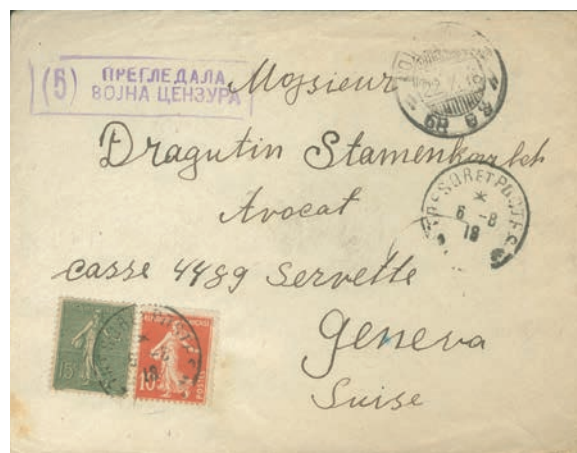 (5) ПРЕГЛЕДАЛА
ВОЈНА ЦЕНЗУРА
Monsieur
Dragutin
Avocat
casse 4489 Servette
Geneva
Suise
TRESOR ET POSTES
*
6 - 8
18
15
10
POSTES